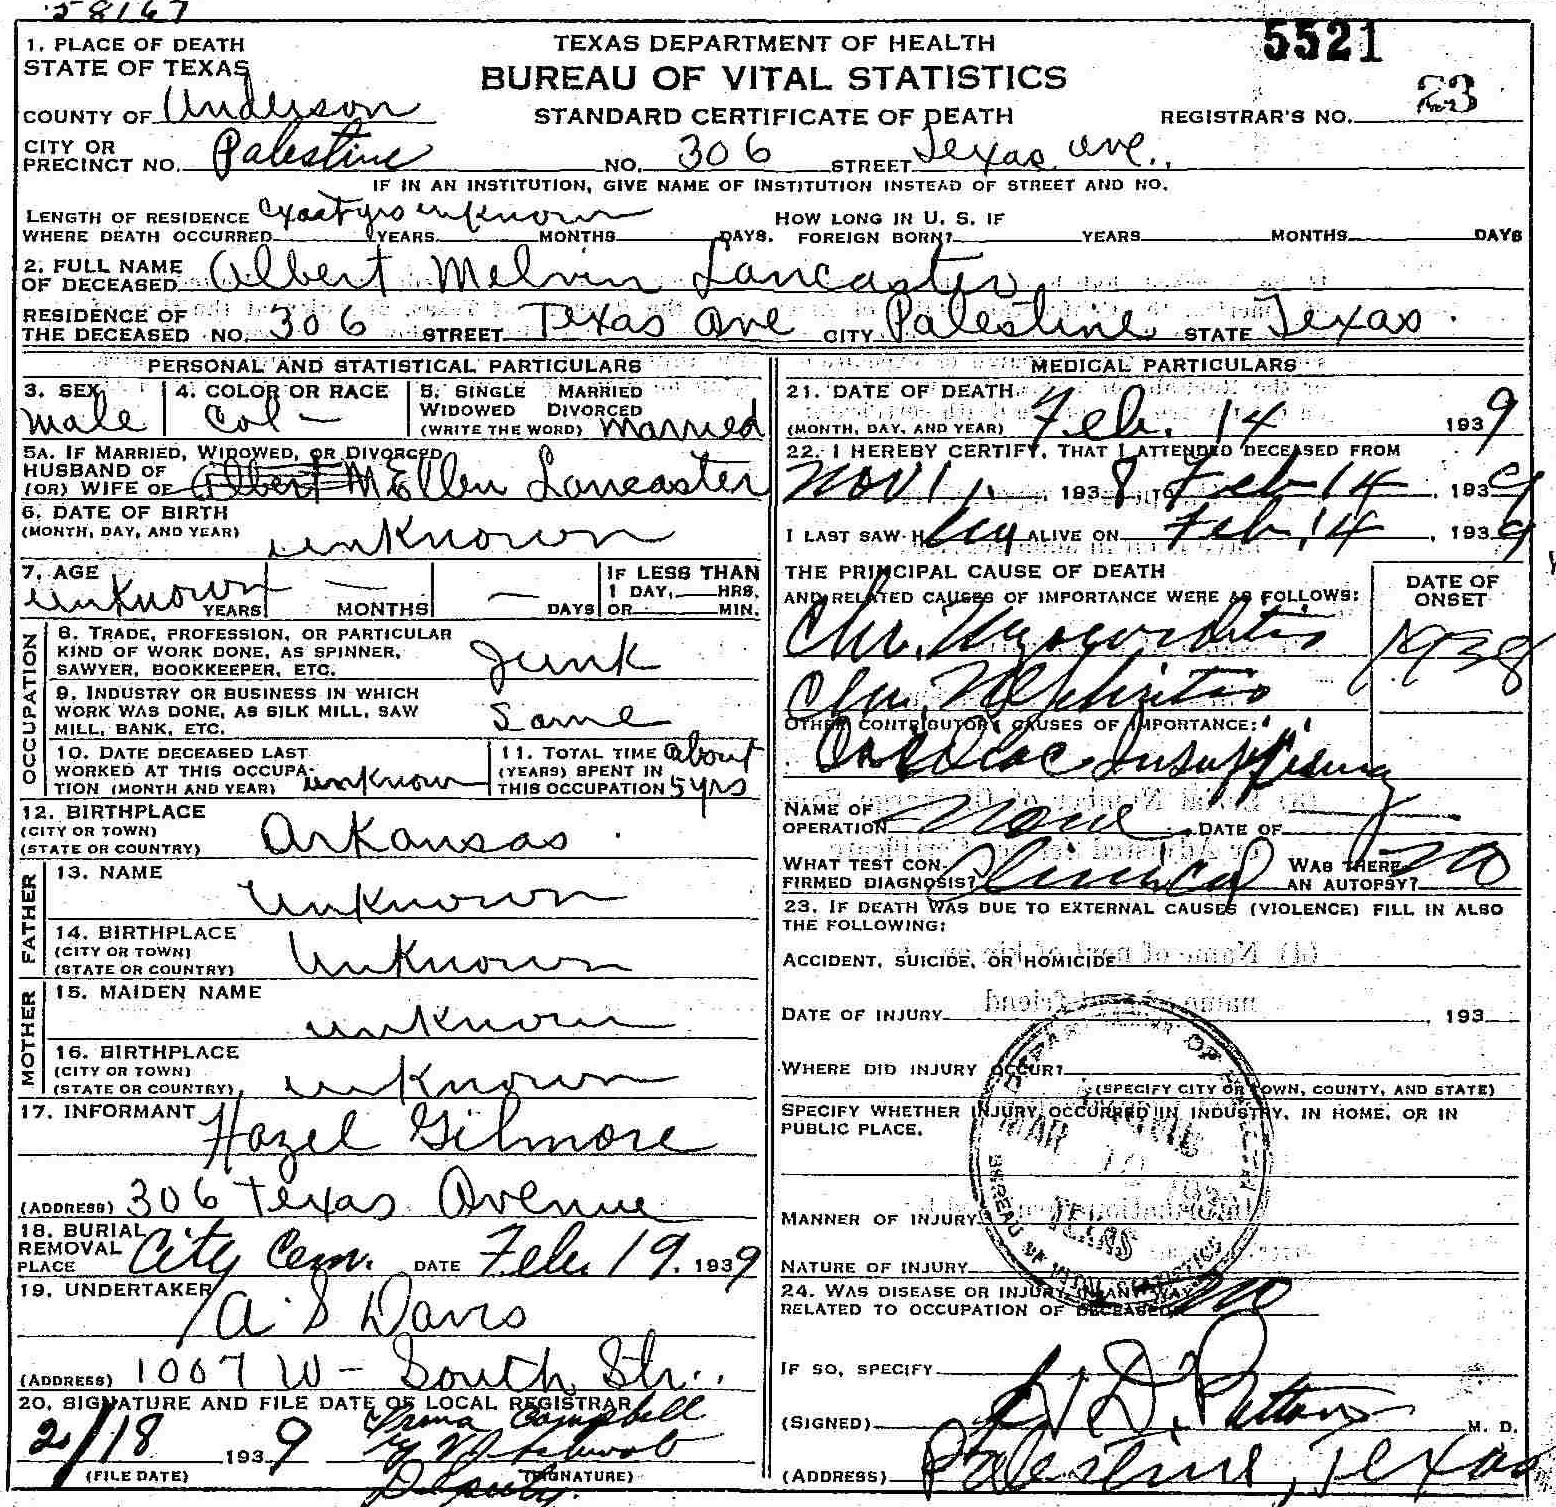 58167
1. PLACE OF DEATH
STATE OF TEXAS
TEXAS DEPARTMENT OF HEALTH
BUREAU OF VITAL STATISTICS
STANDARD CERTIFICATE OF DEATH
5521
COUNTY OF Anderson
REGISTRAR'S NO. 23
CITY OR PRECINCT NO. Palestine NO. 306 STREET Texas Ave.,
IF IN AN INSTITUTION, GIVE NAME OF INSTITUTION INSTEAD OF STREET AND NO.
LENGTH OF RESIDENCE WHERE DEATH OCCURRED unknown YEARS MONTHS DAYS. HOW LONG IN U. S. IF FOREIGN BORN? YEARS MONTHS DAYS
2. FULL NAME OF DECEASED Albert Melvin Lancaster
RESIDENCE OF THE DECEASED NO. 306 STREET Texas Ave CITY Palestine STATE Texas.
PERSONAL AND STATISTICAL PARTICULARS
3. SEX male
4. COLOR OR RACE Col -
5. SINGLE MARRIED WIDOWED DIVORCED (WRITE THE WORD) married
5A. IF MARRIED, WIDOWED, OR DIVORCED
HUSBAND OF (OR) WIFE OF Albert M Ellen Lancaster
6. DATE OF BIRTH (MONTH, DAY, AND YEAR) unknown
7. AGE unknown YEARS — MONTHS — DAYS IF LESS THAN 1 DAY, HRS. OR MIN.
OCCUPATION
8. TRADE, PROFESSION, OR PARTICULAR KIND OF WORK DONE, AS SPINNER, SAWYER, BOOKKEEPER, ETC. Junk
9. INDUSTRY OR BUSINESS IN WHICH WORK WAS DONE, AS SILK MILL, SAW MILL, BANK, ETC. Same
10. DATE DECEASED LAST WORKED AT THIS OCCUPATION (MONTH AND YEAR) unknown
11. TOTAL TIME (YEARS) SPENT IN THIS OCCUPATION about 5 yrs
12. BIRTHPLACE (CITY OR TOWN) (STATE OR COUNTRY) Arkansas
FATHER
13. NAME Unknown
14. BIRTHPLACE (CITY OR TOWN) (STATE OR COUNTRY) Unknown
MOTHER
15. MAIDEN NAME unknown
16. BIRTHPLACE (CITY OR TOWN) (STATE OR COUNTRY) unknown
17. INFORMANT Hazel Gilmore
(ADDRESS) 306 Texas Avenue
18. BURIAL REMOVAL PLACE City Cem. DATE Feb. 19. 1939
19. UNDERTAKER A. S Davis
(ADDRESS) 1007 W - South Str.,
20. SIGNATURE AND FILE DATE OF LOCAL REGISTRAR
2/18 1939 Irma Campbell
(FILE DATE) (SIGNATURE)
Deputy.
MEDICAL PARTICULARS
21. DATE OF DEATH (MONTH, DAY, AND YEAR) Feb. 14 1939
22. I HEREBY CERTIFY, THAT I ATTENDED DECEASED FROM
Nov 1, 1938 TO Feb 14, 1939
I LAST SAW H ALIVE ON Feb, 14, 1939
THE PRINCIPAL CAUSE OF DEATH
AND RELATED CAUSES OF IMPORTANCE WERE AS FOLLOWS:
DATE OF ONSET
Chr. Myocarditis 1938
Chr. Nephritis
OTHER CONTRIBUTORY CAUSES OF IMPORTANCE:
Cardiac Insufficiency
NAME OF OPERATION None DATE OF
WHAT TEST CONFIRMED DIAGNOSIS? Clinical WAS THERE AN AUTOPSY? no
23. IF DEATH WAS DUE TO EXTERNAL CAUSES (VIOLENCE) FILL IN ALSO
THE FOLLOWING:
ACCIDENT, SUICIDE, OR HOMICIDE
DATE OF INJURY , 193
WHERE DID INJURY OCCUR?
(SPECIFY CITY OR TOWN, COUNTY, AND STATE)
SPECIFY WHETHER INJURY OCCURRED IN INDUSTRY, IN HOME, OR IN
PUBLIC PLACE.
MANNER OF INJURY
NATURE OF INJURY
DEPARTMENT OF HEALTH
MAR
TEXAS
BUREAU OF VITAL STATISTICS
24. WAS DISEASE OR INJURY IN ANY WAY
RELATED TO OCCUPATION OF DECEASED? no
IF SO, SPECIFY
(SIGNED) D. Patton M. D.
(ADDRESS) Palestine, Texas